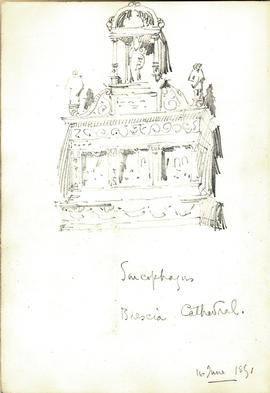 Sarcophagus
Brescia Cathedral.
16 June 1891